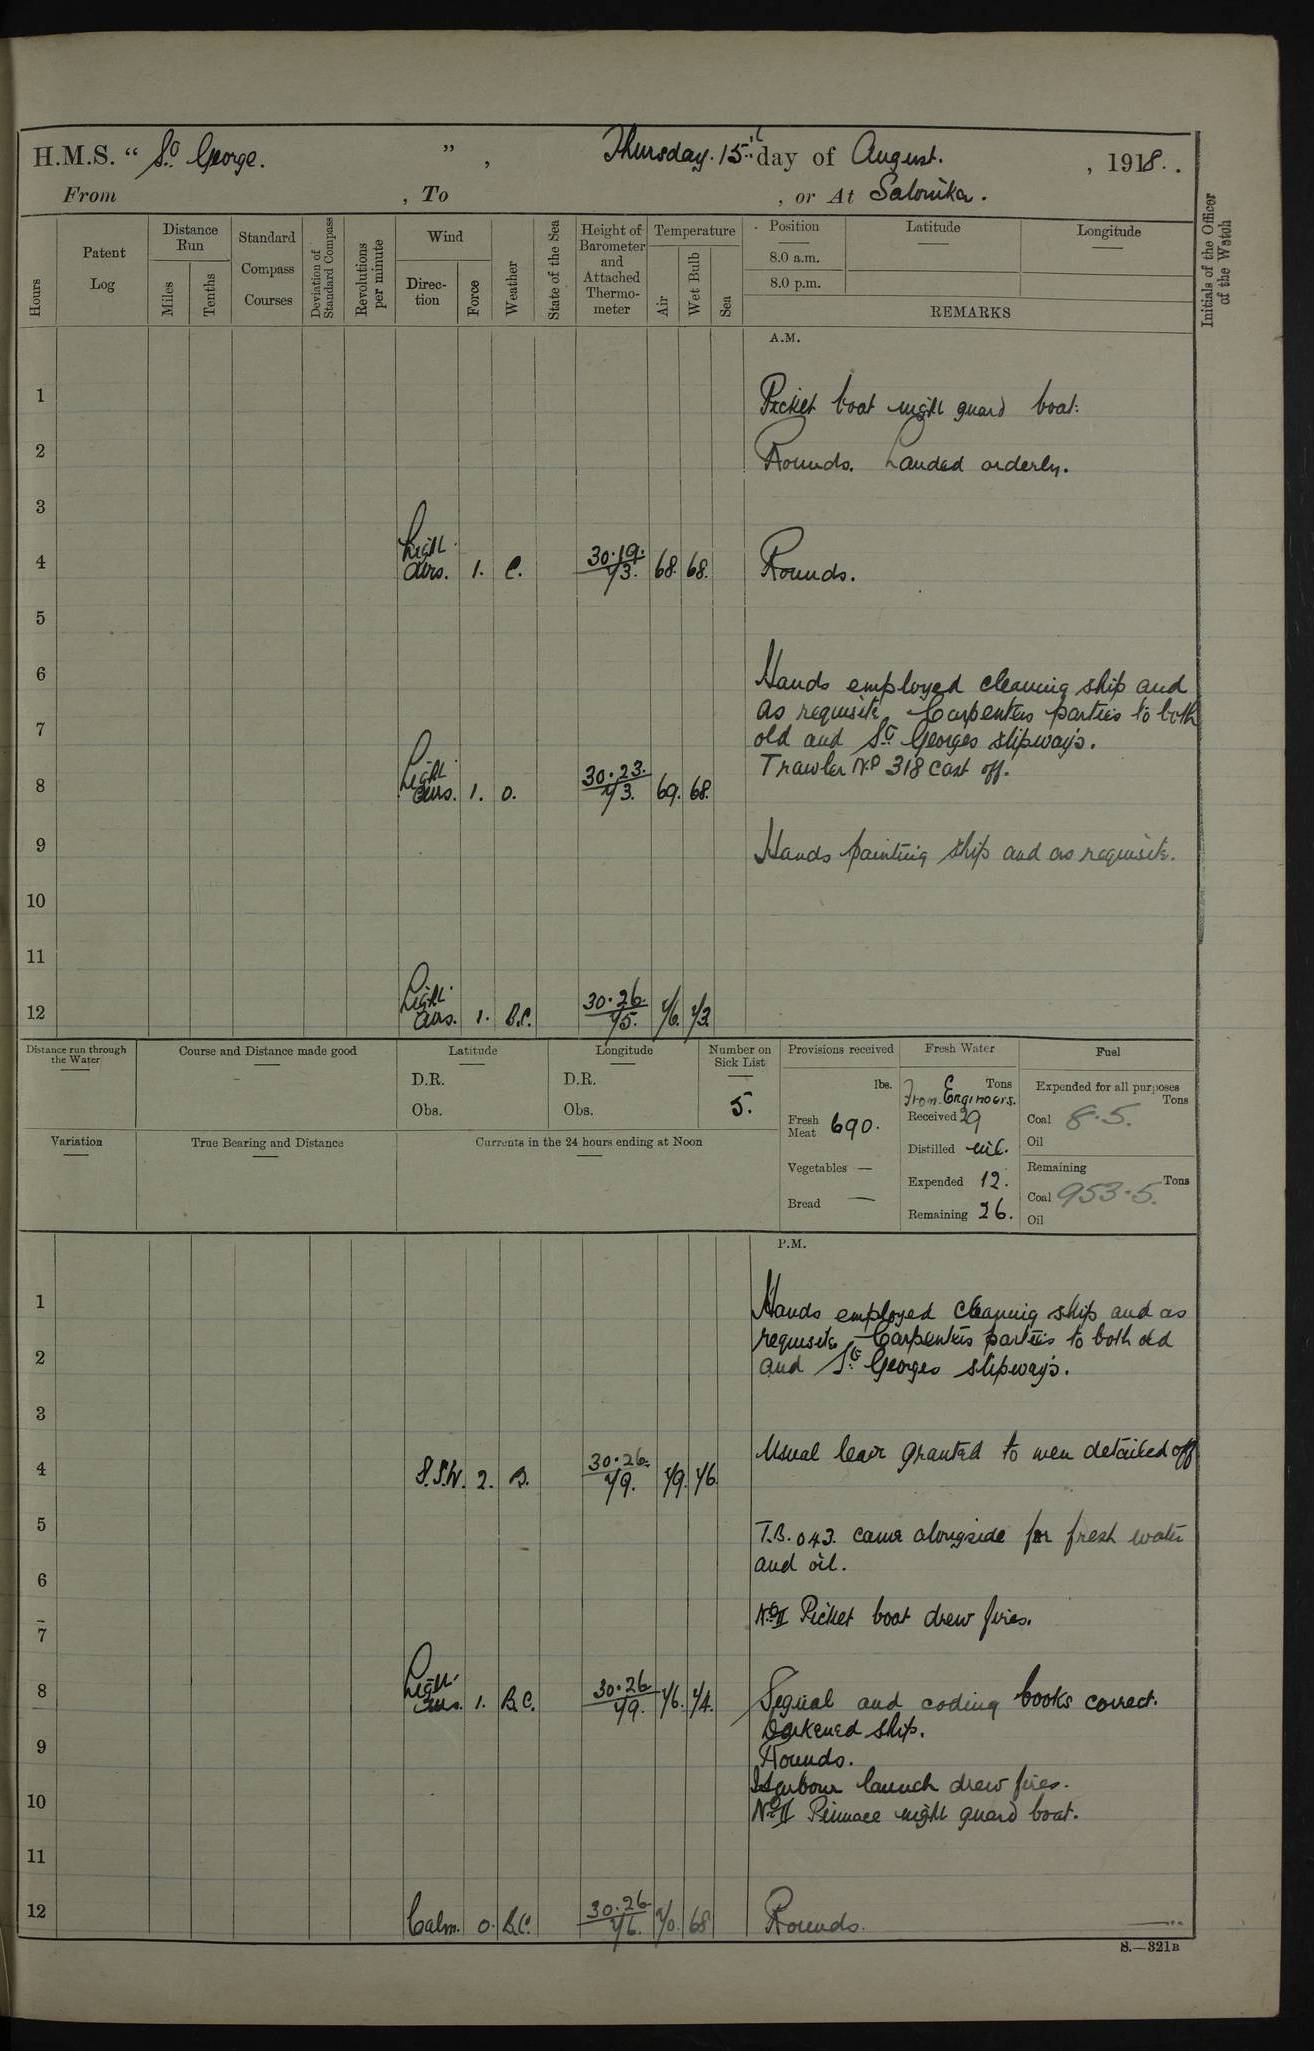 H.M.S. “ St George. ” , Thursday. 15th day of August. , 1918. .
From , To , or At Salonika.
Hours
Patent Log
Distance Run
Miles
Tenths
Standard Compass Courses
Deviation of Standard Compass
Revolutions per minute
Wind
Direction
Force
Weather
State of the Sea
Height of Barometer and Attached Thermometer
Temperature
Air
Wet Bulb
Sea
Position
8.0 a.m.
8.0 p.m.
Latitude
Longitude
REMARKS
Initials of the Officer of the Watch
A.M.
1 Picket boat night guard boat.
2 Rounds. Landed orderly.
3
4 Light airs. 1. C. 30.19. 73. 68. 68. Rounds.
5
6 Hands employed cleaning ship and
as requisite. Carpenters parties to both
7 old and St Georges slipways.
Trawler No 318 cast off.
8 Light airs. 1. O. 30.23. 73. 69. 68.
9 Hands painting ship and as requisite.
10
11
12 Light airs. 1. B.C. 30.26. 75. 76. 73.
Distance run through the Water
Course and Distance made good
Latitude
D.R.
Obs.
Longitude
D.R.
Obs.
Number on Sick List
5.
Provisions received
lbs.
Fresh Meat 690.
Vegetables —
Bread —
Fresh Water
Tons
From Engineers.
Received 29
Distilled nil.
Expended 12.
Remaining 26.
Fuel
Expended for all purposes
Tons
Coal 8.5.
Oil
Remaining
Tons
Coal 953.5.
Oil
Variation
True Bearing and Distance
Currents in the 24 hours ending at Noon
P.M.
1 Hands employed cleaning ship and as
requisite. Carpenters parties to both old
2 and St Georges slipways.
3
4 S.S.W. 2. B. 30.26. 79. 79. 76. Usual leave granted to men detailed off
5 T.B. 043. came alongside for fresh water
and oil.
6
No II Picket boat drew fires.
7
8 Light airs. 1. B.C. 30.26. 79. 76. 74. Signal and coding books correct.
Darkened ship.
9 Rounds.
Harbour launch drew fires.
10 No II Pinnace night guard boat.
11
12 Calm. 0. B.C. 30.26. 76. 70. 68 Rounds.
S.—321B